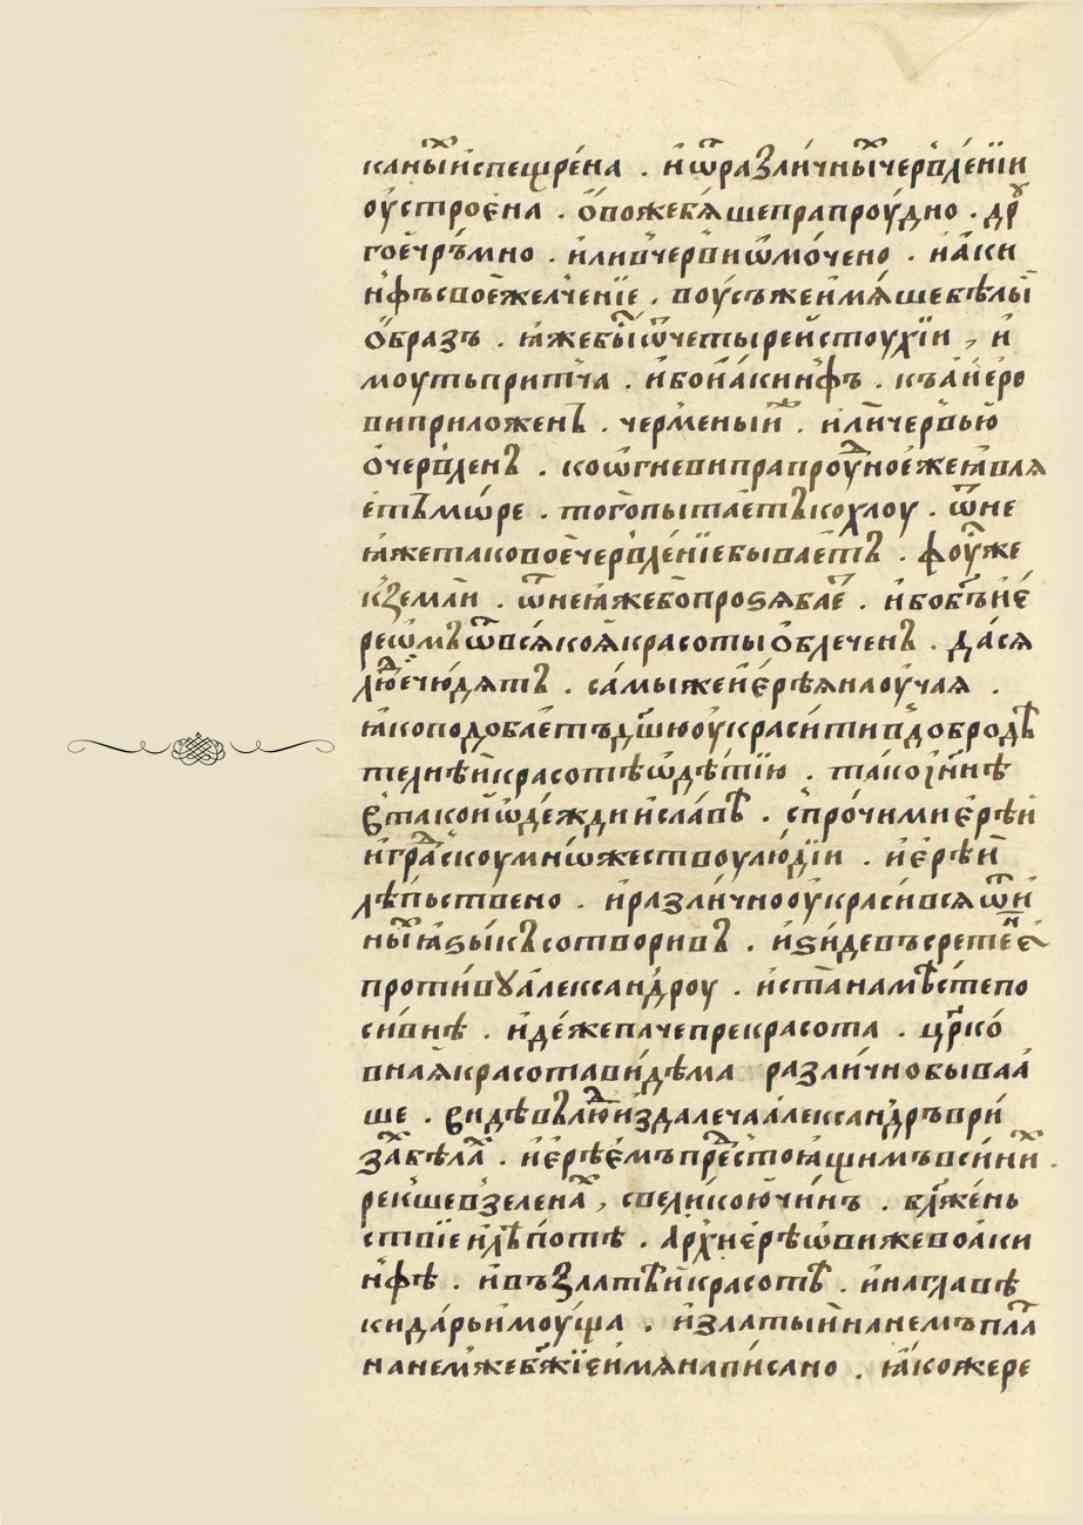 каны́ⷯ и҆спещре́на . и҆ ѿ разли́чныⷯ черв̾ле́нїи
оу҆строе́на . ѻ҆́во же бѧ́ше прапроу́дно . дрꙋ
гое҆ чръ́мно . и҆ли в̾черв̾ни ѡ҆мо́чено . и҆ а҆ки
н̾фъ свое҆ желче́нїе . воу́съ же и҆мѧ́ше бѣлы́и
ѻ҆́бразъ . ꙗ҆́же бы́ⷭ ѿ четы́ре и҆ стоухїи , и҆
моуть при́тча . и҆бо и҆ а҆́кинфъ . къ а҆и҆е҆ро
ви приложенъ . че́рменыи . и҆лѝ че́рвью
ѻ҆черв̾ленъ . ко ѡ҆гневи прапроуⷣное е҆же ꙗ҆влѧ
е́тъ мѡ́ре . того̀ пыта́етъ кохлоу . ѿ не
ꙗ҆же таково́е черв̾ле́нїе быва́етъ . фоуⷭ҇ же
к̾земли . ѿ неꙗ҆же бо̀ проѕѧба́еⷮ . и҆бо бⷭ҇ъ и҆е҆
реѡ҆мъ ѿ всѧ́коѧ̀ красоты ѻ҆блече́нъ . да сѧ
люⷣе чю́дѧтъ . са́мы же и҆е҆ре́ѣѧ наоу́чаѧ .
ꙗ҆ко подоба́етъ дш҃ю оу҆краси́ти в̾ доброⷣѣ
телнѣи красотѣ ѡ҆дѣ́тїю . та́ко и҆ н҃нѣ
в̾тако́и ѡ҆де́жди и҆ сла́вѣ . с̾про́чими е҆рѣи
и҆ граⷣскоу мнѡ́жествоу лю́дїи . и҆ е҆рѣи
лѣ́пьствено . и҆ разли́чно оу҆краси́всѧ ѿ и҆
ныⷯ ꙗ҆зы́къ сотворивъ . и҆ѕи́де въ срете́нїе
проти́вꙋ а҆лександроу . и҆ ста на мѣ́сте по
си́внѣ . и҆де́же па́че прекрасота . црⷦ҇о́
внаѧ красота ви́дѣма разли́чно быва́а
ше . ви́дѣвъ люⷣи и҆здалеча а҆лекса́ндръ в̾ ри́
заⷯ бѣлаⷯ . и҆е҆рѣе́мъ преⷣстоѧ́щимъ в̾ си́ниⷯ .
рек̾ше в̾зеленаⷯ , с̾вели́кою чи́нъ . блаже́нь
ствїе и҆ лѣ́потѣ . А҆рхи́е҆рѣѡ҆ви же во а҆ки
н̾фѣ . и҆ въ златѣи красотѣ . и҆ на главѣ
кида́рь и҆моу́ща . и҆ златыи на не́мъ пла
на не́м же бж҃їе и҆мѧ напи́сано . ꙗ҆́коже ре